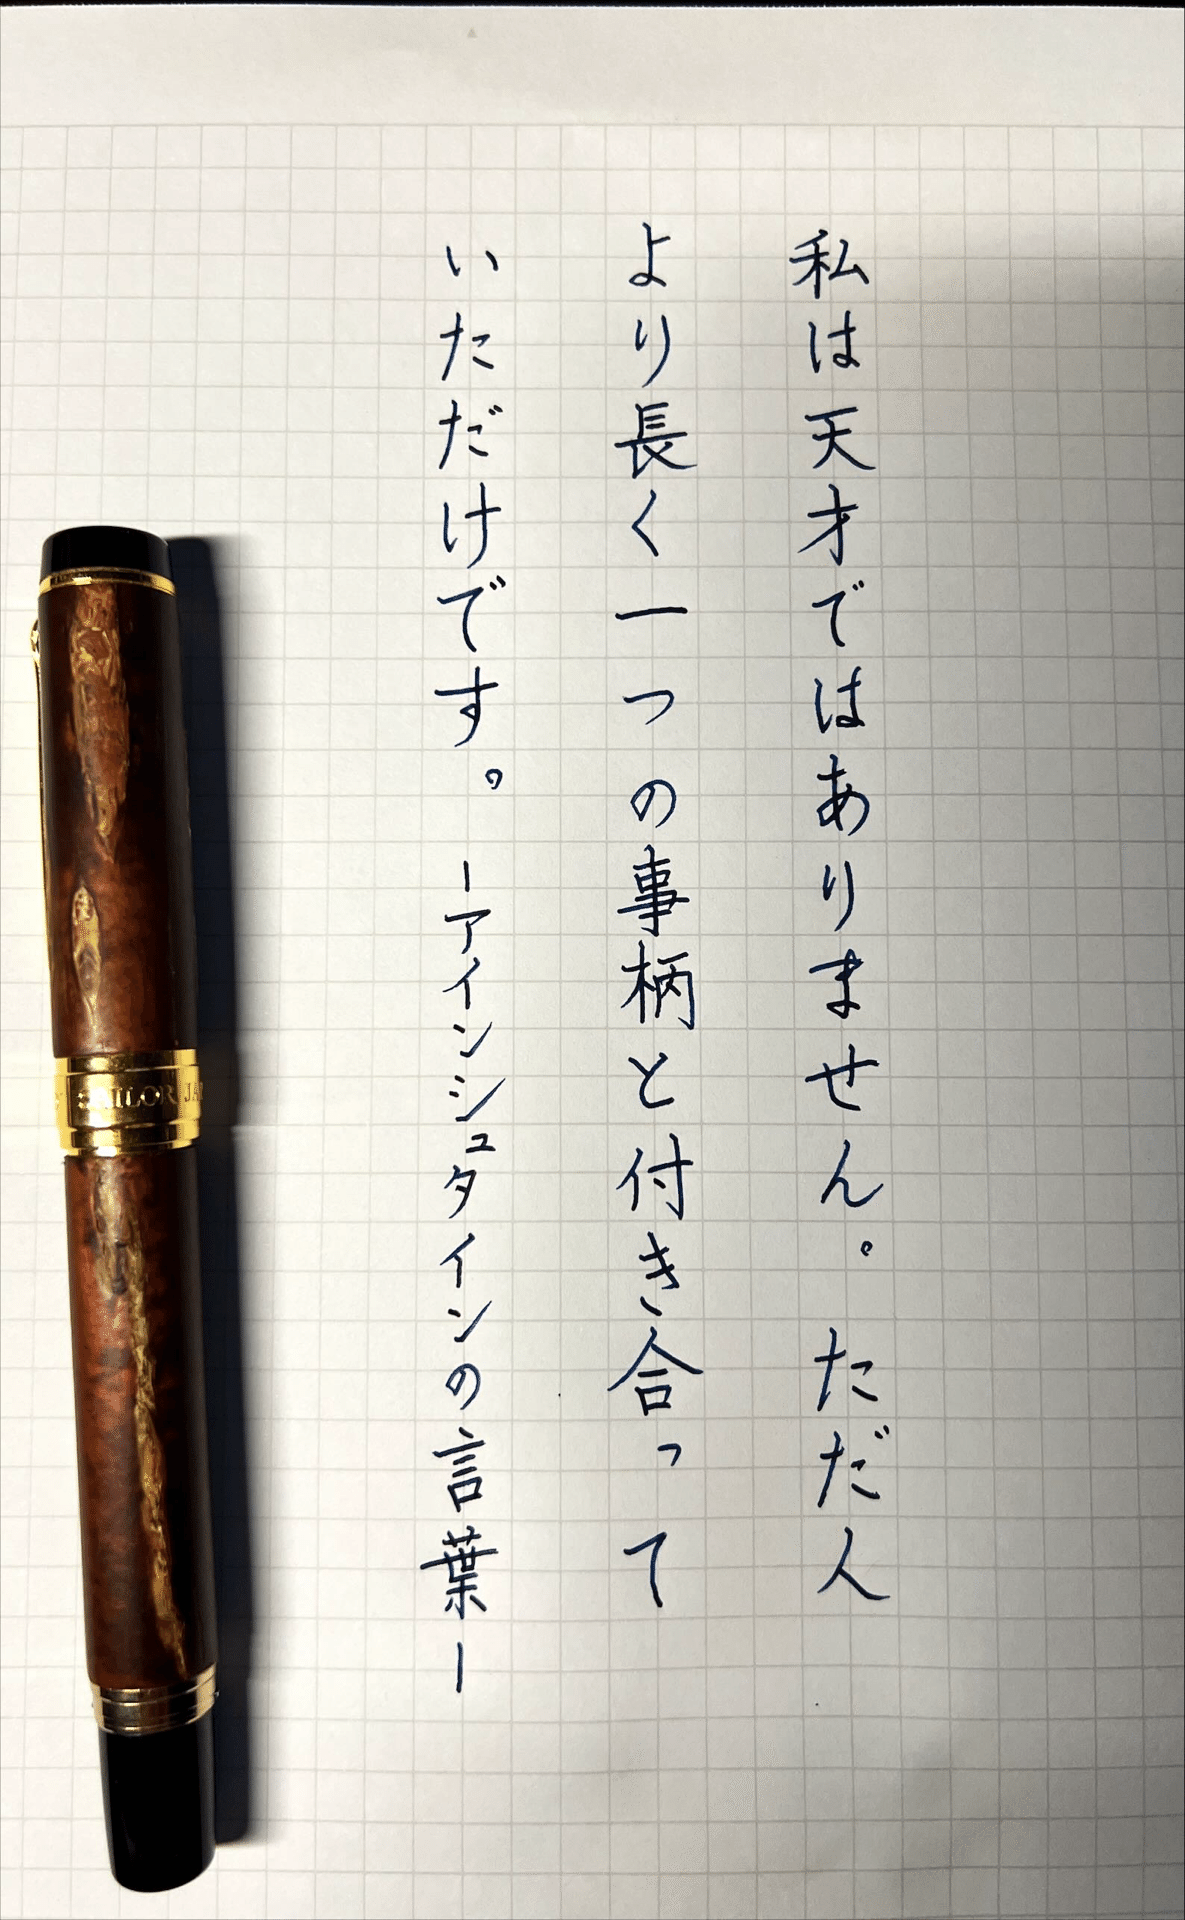 私は天才ではありません。ただ人
より長く一つの事柄と付き合って
いただけです。 ーアインシュタインの言葉ー
SAILOR JA